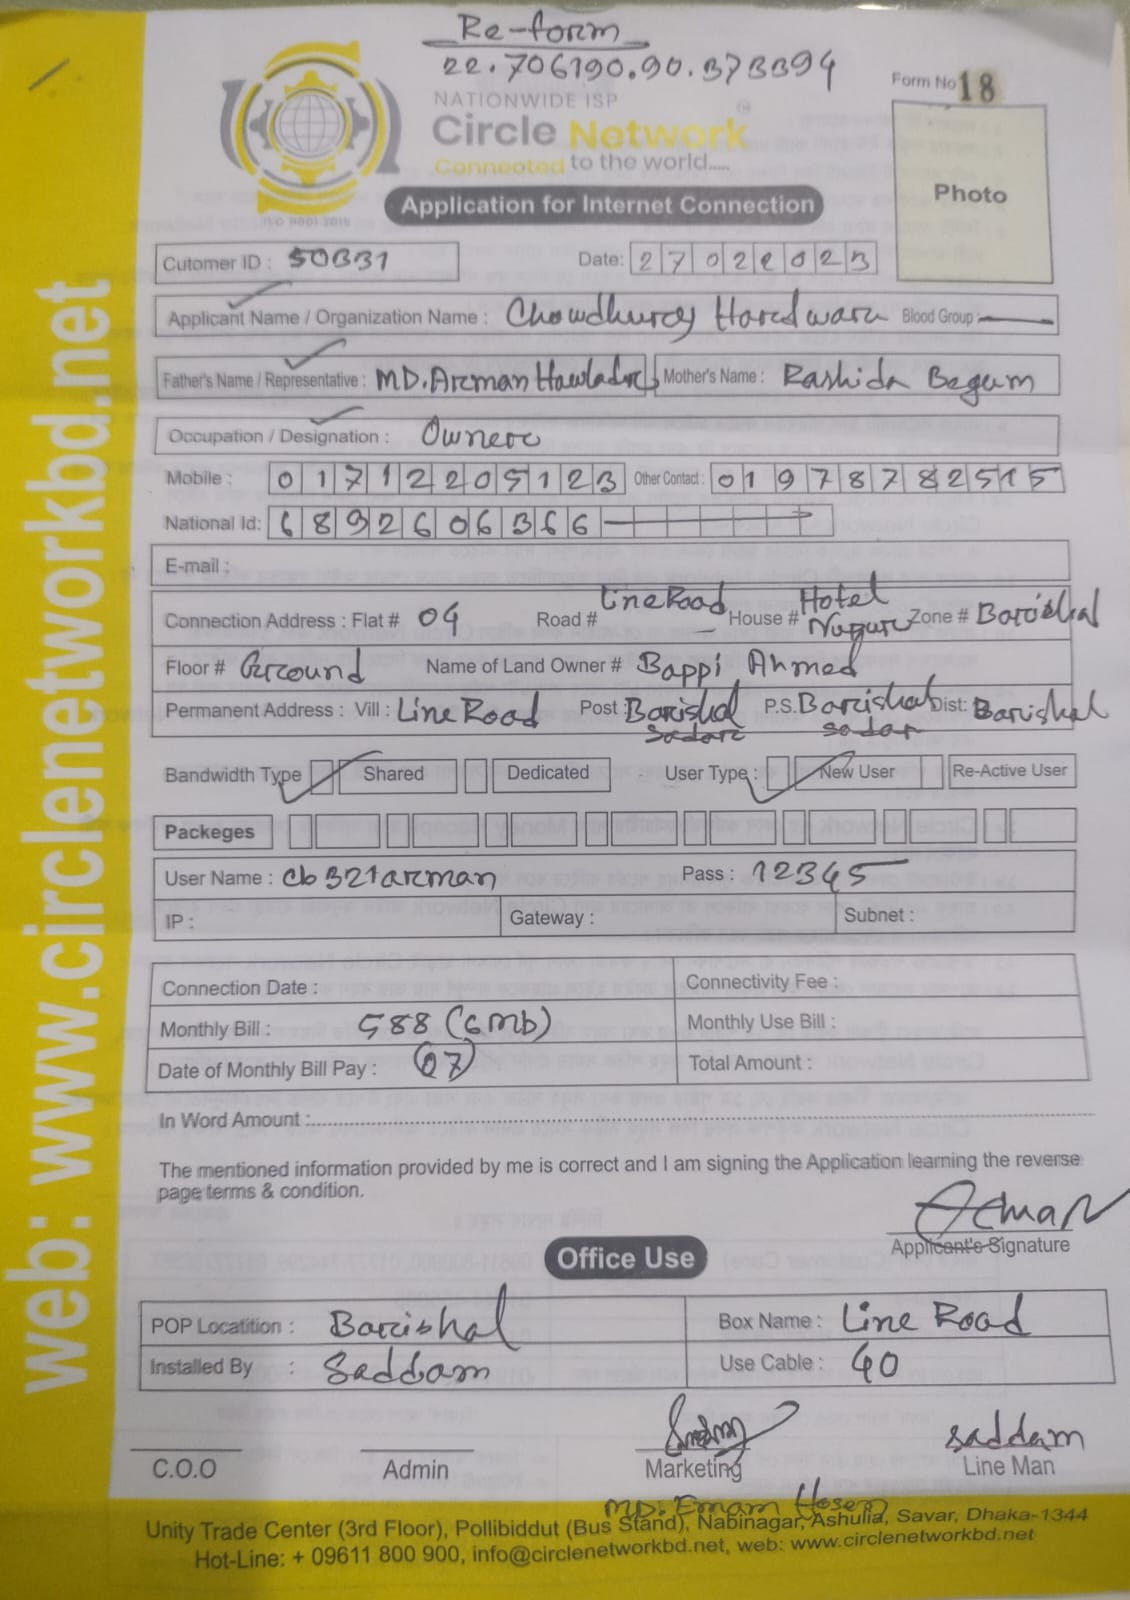 Re-form
22.706190.90.373394
Form No 18
NATIONWIDE ISP
Circle Network
Connected to the world.....
ISO 9001:2015
Photo
Application for Internet Connection
Cutomer ID : 50331 Date: 27022023
Applicant Name / Organization Name : Chowdhury Hardware Blood Group :
Father's Name / Representative : MD. Arman Hawlader Mother's Name : Rashida Begum
Occupation / Designation : Owner
Mobile : 01712205123 Other Contact : 01978782515
National Id: 6892606366
E-mail :
Connection Address : Flat # 04 Road # Line Road House # Hotel Nupur Zone # Barishal
Floor # Ground Name of Land Owner # Bappi Ahmed
Permanent Address : Vill : Line Road Post : Barishal Sadar P.S. Barishal sadar Dist: Barishal
Bandwidth Type Shared Dedicated User Type : New User Re-Active User
Packeges
User Name : cb321arman Pass : 12345
IP : Gateway : Subnet :
Connection Date : Connectivity Fee :
Monthly Bill : 588 (6mb) Monthly Use Bill :
Date of Monthly Bill Pay : 07 Total Amount :
In Word Amount :
The mentioned information provided by me is correct and I am signing the Application learning the reverse
page terms & condition.
Arman
Applicant's Signature
Office Use
POP Locatition : Barishal Box Name : Line Road
Installed By : Saddam Use Cable : 40
saddam
C.O.O Admin Marketing Line Man
MD. Emam Hosen
Unity Trade Center (3rd Floor), Pollibiddut (Bus Stand), Nabinagar, Ashulia, Savar, Dhaka-1344
Hot-Line: + 09611 800 900, info@circlenetworkbd.net, web: www.circlenetworkbd.net
web: www.circlenetworkbd.net